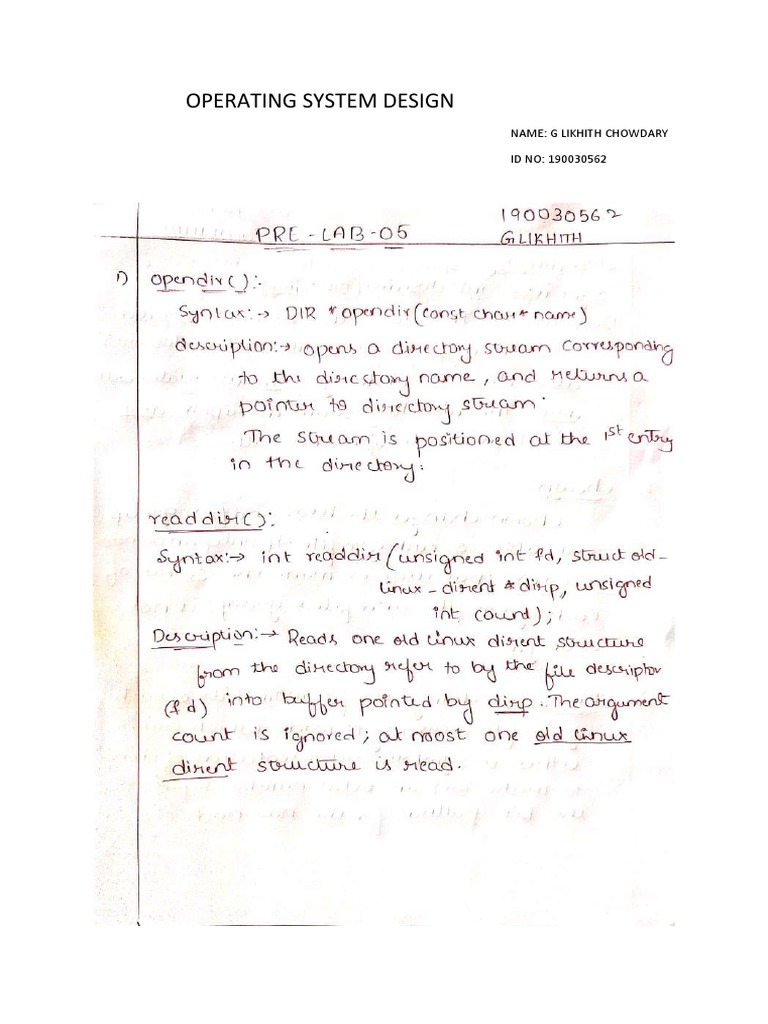 OPERATING SYSTEM DESIGN
NAME: G LIKHITH CHOWDARY
ID NO: 190030562
190030562
PRE-LAB-05
G LIKHITH
1) opendir():-
Syntax:→ DIR *opendir(const char* name)
description:→ opens a directory stream corresponding
to the directory name, and returns a
pointer to directory stream.
The stream is positioned at the 1st entry
in the directory.
readdir():
Syntax:→ int readdir(unsigned int fd, struct old-
linux-dirent *dirp, unsigned
int count);
Description:→ Reads one old linux dirent structure
from the directory refer to by the file descriptor
(fd) into buffer pointed by dirp. The argument
count is ignored; at most one old linux
dirent structure is read.